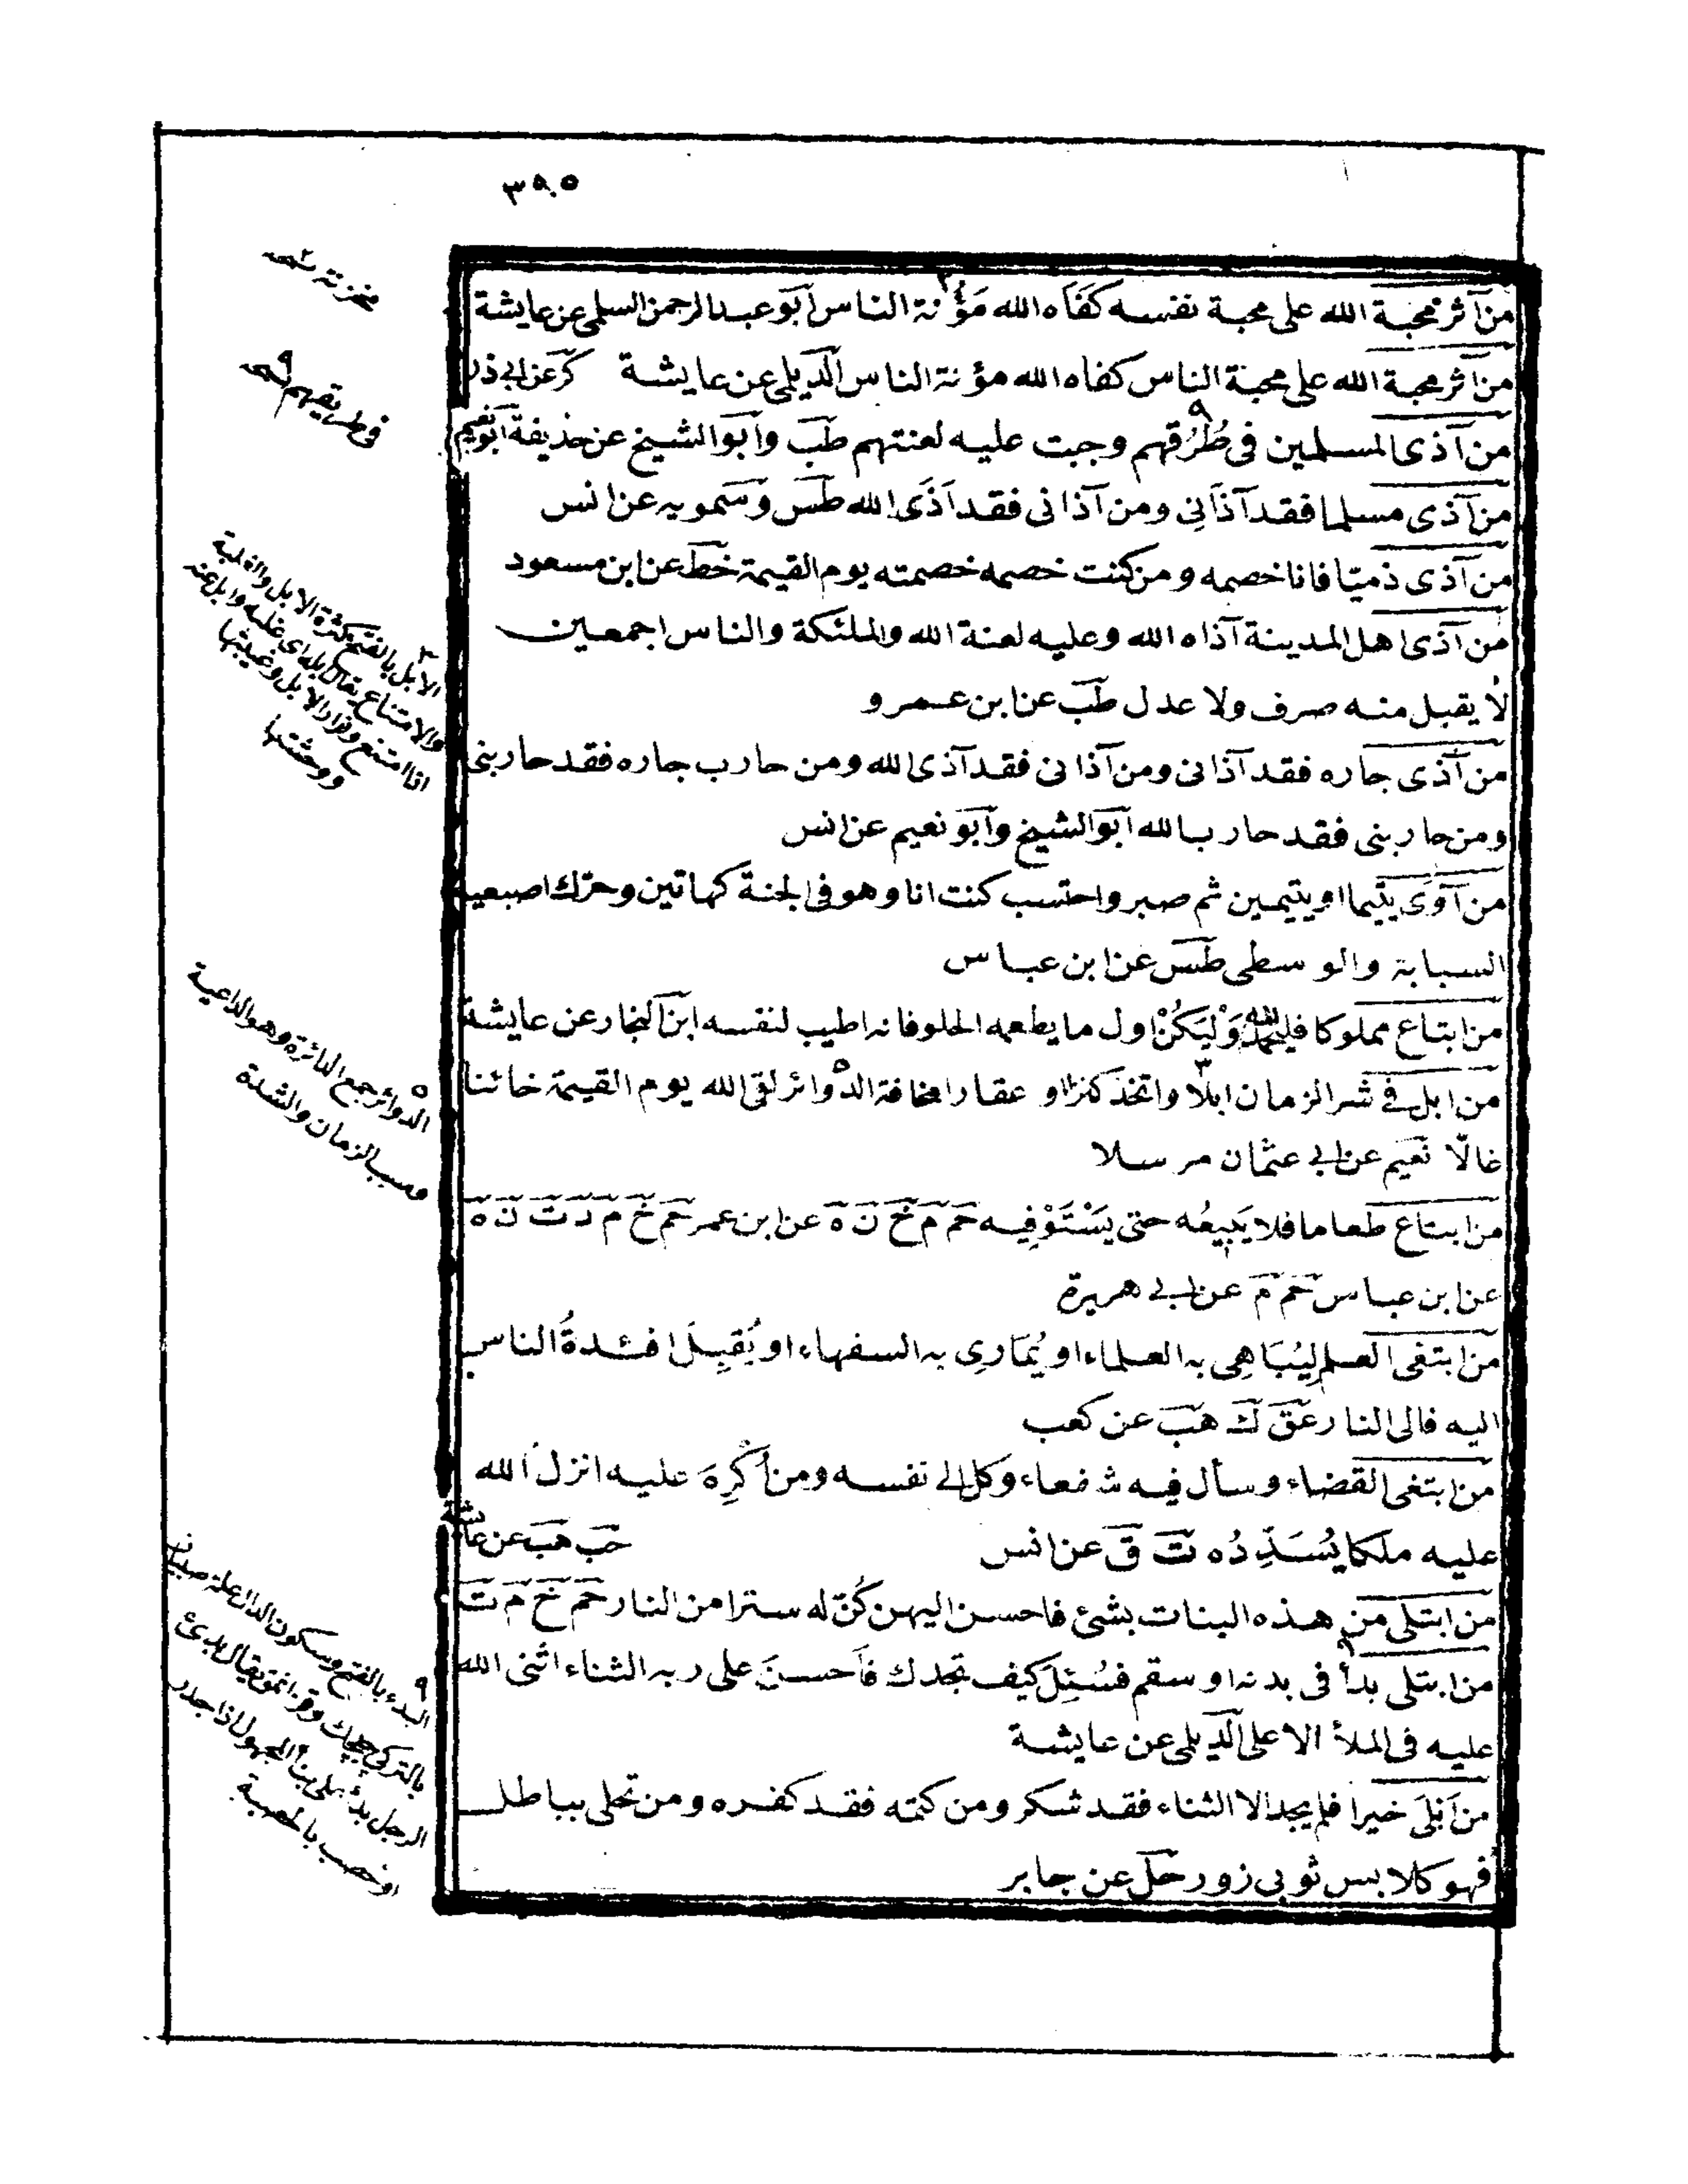 ٣٩٥
من آثر محبة الله على محبة نفسه كفاه الله مَؤُنة الناس ابو عبد الرحمن السلمى عن عايشة
من اثر محبة الله على محبة الناس كفاه الله مؤنة الناس الديلمى عن عايشة كر عن ابى ذر
من آذى المسلمين فى طُرُقهم وجبت عليه لعنتهم طب وابو الشيخ عن حذيفة ابو نعيم
من آذى مسلما فقد آذانِى ومن آذانى فقد آذَى الله طس وسمويه عن انس
من آذى ذميّا فانا خصمه ومن كنت خصمه خصمته يوم القيمة خط عن ابن مسعود
من آذى اهل المدينة آذاه الله وعليه لعنة الله والملئكة والناس اجمعين
لا يقبل منه صرف ولا عدل طب عن ابن عمرو
من آذى جاره فقد آذانى ومن آذانى فقد آذى الله ومن حارب جاره فقد حاربنى
ومن حاربنى فقد حارب الله ابو الشيخ وابو نعيم عن انس
من آوَى يتيما او يتيمين ثم صبر واحتسب كنت انا وهو فى الجنة كهاتين وحرّك اصبعيه
السبابة والوسطى طس عن ابن عباس
من ابتاع مملوكا فليحمد الله وَلْيَكُنْ اول ما يطعمه الحلو فانه اطيب لنفسه ابن النجار عن عايشة
من ابل فى شر الزمان ابلا واتخذ كنزا او عقارا مخافة الدوائر لقى الله يوم القيمة خائنا
غالّا نعيم عن ابى عثمان مرسلا
من ابتاع طعاما فلا يَبِيعُه حتى يَسْتَوْفِيه حم م خ ن ه عن ابن عمر حم خ م د ت ن ه
عن ابن عباس حم م عن ابى هريرة
من ابتغى العلم لِيُبَاهِى به العلماء او يُمَارِى به السفهاء او يُقبِلَ افئدةُ الناس
اليه فالى النار عق ك هب عن كعب
من ابتغى القضاء وسأل فيه شفعاء وكل الى نفسه ومن أُكْرِهَ عليه انزل الله
عليه ملكا يُسَدِّدُه ت ق عن انس حب هب عن عايشة
من ابتلى من هذه البنات بشئ فاحسن اليهن كُنّ له سترا من النار حم خ م ت
من ابتلى بدأ فى بدنه او سقم فسُئِلَ كيف تجدك فاحسنَ على ربه الثناء اثنى الله
عليه فى الملأ الاعلى الديلمى عن عايشة
من اُبْلِىَ خيرا فلم يجد الا الثناء فقد شكر ومن كتمه فقد كفره ومن تحلى بباطل
فهو كلابس ثوبى زور حل عن جابر
فى طريقهم نسخه
الابل بالفتح كثرة الابل والغلبة
والامتناع يقال ابله اى غلبه وابل عنه
اذا امتنع
ووحشتها
الدوائر جمع الدائرة وهو الداعية
وسبب الزمان والشدة
البدء بالفتح وسكون الدال علة
الرجل
او خصب بالحصبة